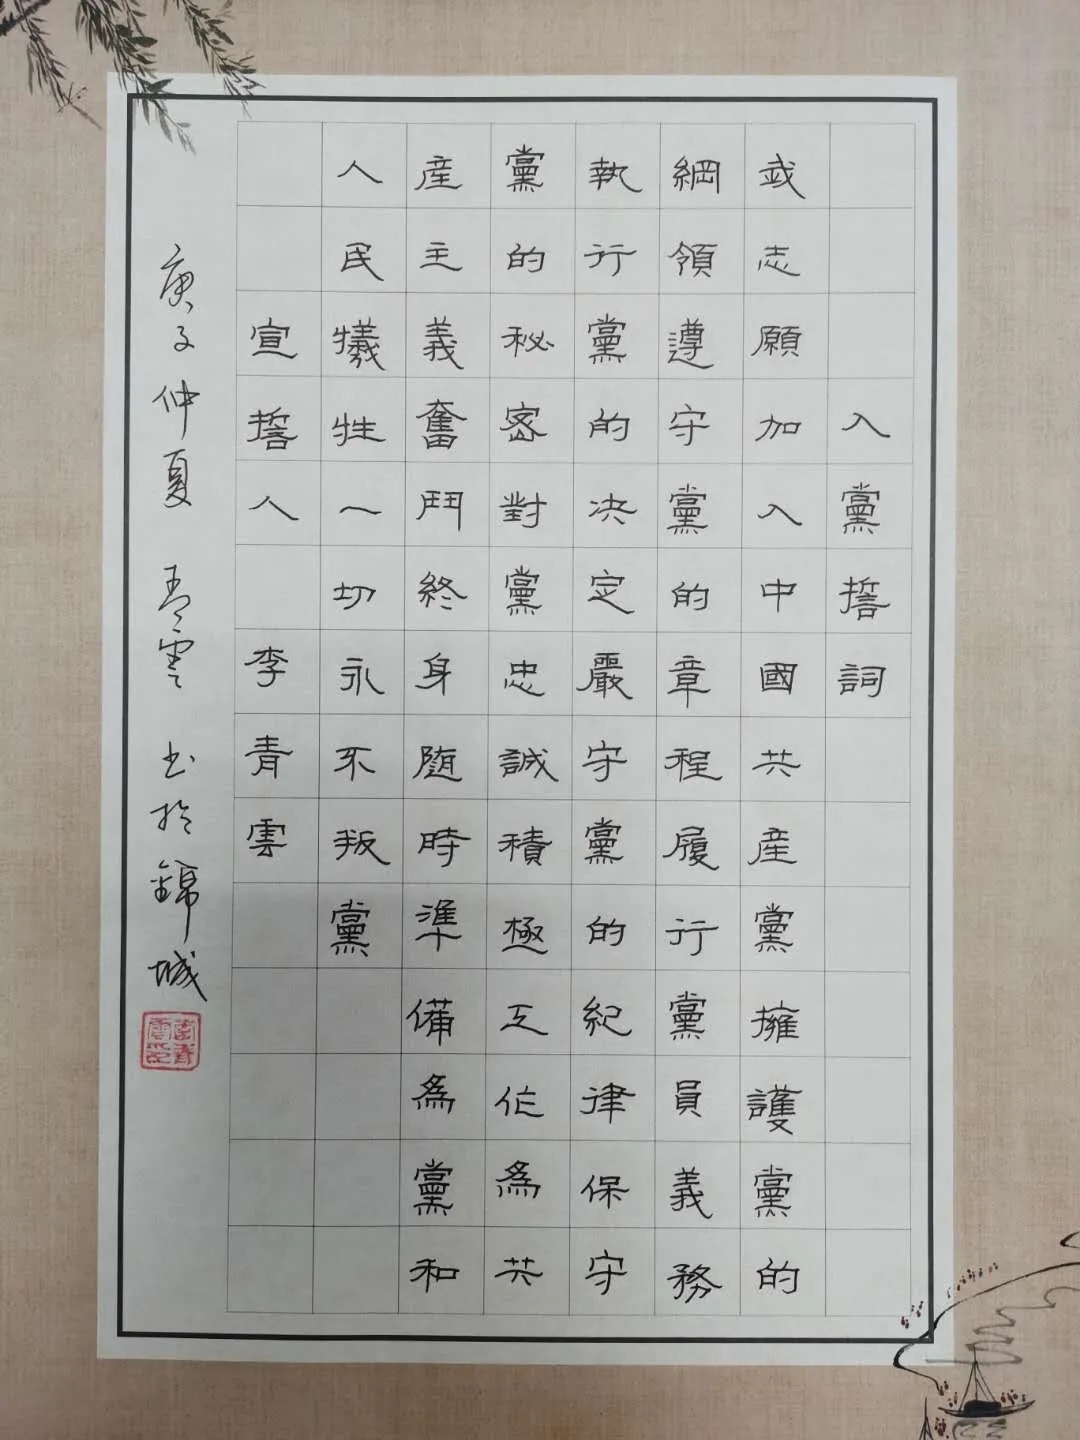 入黨誓詞
我志願加入中國共産黨擁護黨的
綱領遵守黨的章程履行黨員義務
執行黨的决定嚴守黨的紀律保守
黨的秘密對黨忠誠積極工作為共
産主義奮鬥終身随時準備為黨和
人民犧牲一切永不叛黨
宣誓人 李青雲
庚子仲夏 青雲 书於錦城
李青雲印